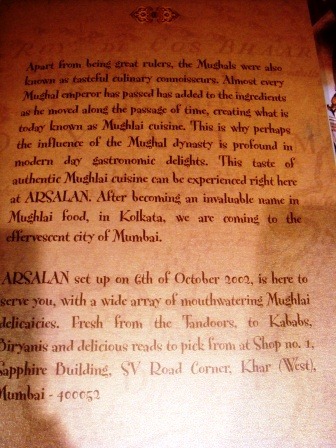 Apart from being great rulers, the Mughals were also
known as tasteful culinary connoisseurs. Almost every
Mughal emperor has passed has added to the ingredients
as he moved along the passage of time, creating what is
today known as Mughlai cuisine. This is why perhaps
the influence of the Mughal dynasty is profound in
modern day gastronomic delights. This taste of
authentic Mughlai cuisine can be experienced right here
at ARSALAN. After becoming an invaluable name in
Mughlai food, in Kolkata, we are coming to the
effervescent city of Mumbai.
ARSALAN set up on 6th of October 2002, is here to
serve you, with a wide array of mouthwatering Mughlai
delicaicies. Fresh from the Tandoors, to Kababs,
Biryanis and delicious reads to pick from at Shop no. 1,
Sapphire Building, SV Road Corner, Khar (West),
Mumbai - 400052